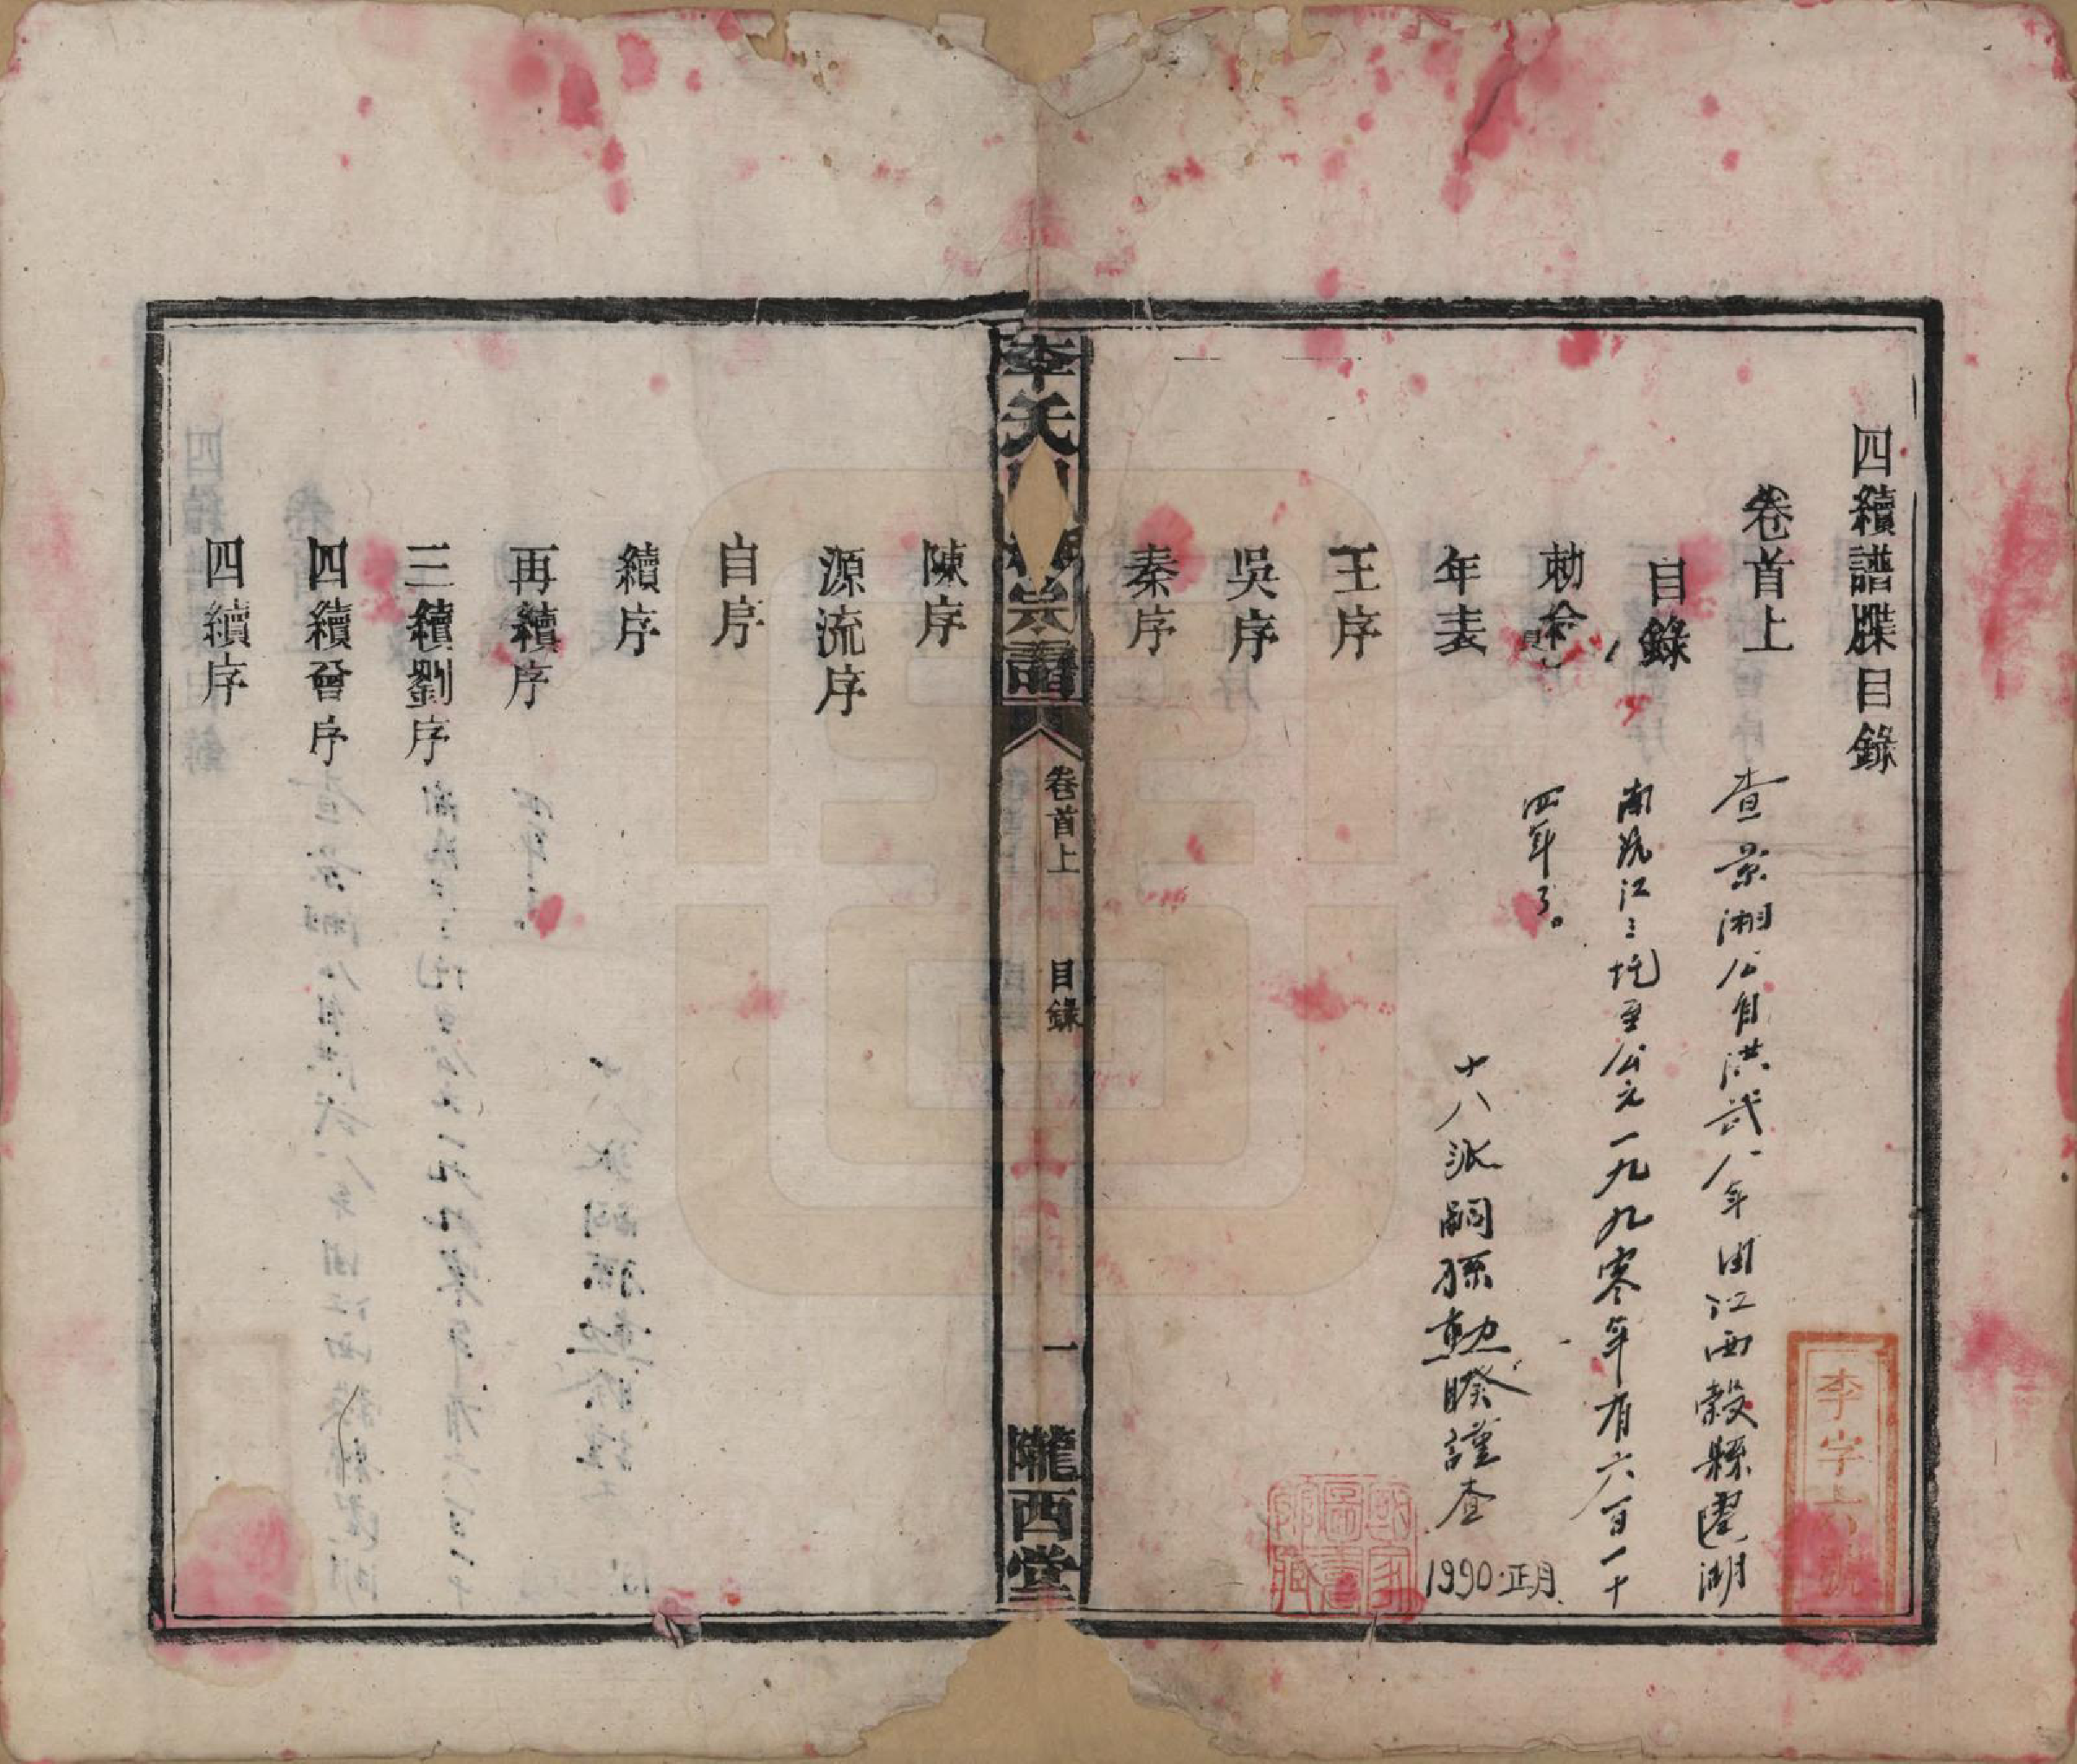 四續譜牒目錄
卷首上
目錄
勅命
年表
王序
吳序
秦序
查景湘公自洪武八年由江西穀縣圍湖
南沅江三圫至公元一九九零年有六百一十
四年了。
十八派嗣孫勳睽謹查
1990.正月
李字
國家圖書館藏
李氏四續宗譜
卷首上
目錄
一
隴西堂
陳序
源流序
自序
續序
再續序
三續劉序
四續曾序
四續序